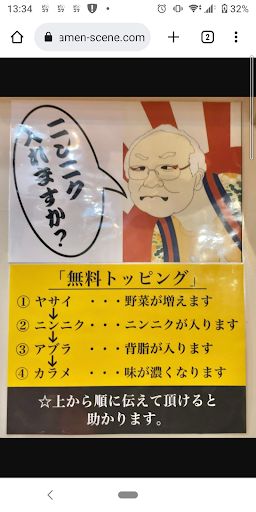 13:34
32%
amen-scene.com
2
ニンニク
入れますか?
「無料トッピング」
① ヤサイ ・・・野菜が増えます
↓
② ニンニク・・・ニンニクが入ります
↓
③ アブラ ・・・背脂が入ります
↓
④ カラメ ・・・味が濃くなります
☆上から順に伝えて頂けると
助かります。